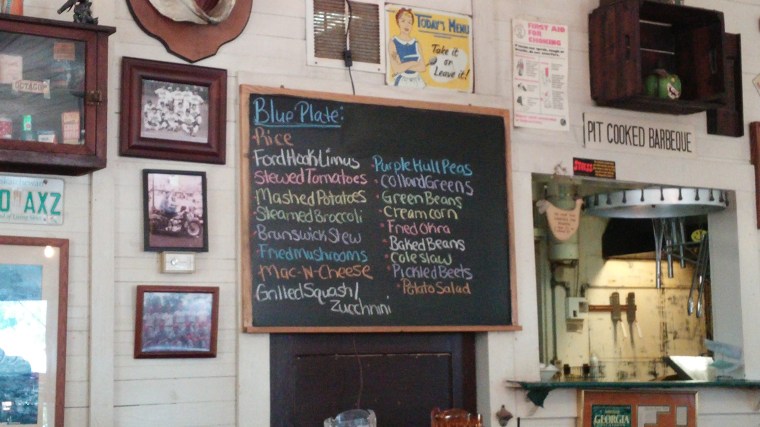 TODAY'S MENU
Take it
or
Leave it!
FIRST AID
FOR
CHOKING
PIT COOKED BARBEQUE
AXZ
Blue Plate:
Rice
Ford Hook Limus
Stewed Tomatoes
Mashed Potatoes
Steamed Broccoli
Brunswick Stew
Fried Mushrooms
Mac-N-Cheese
Grilled Squash/
Zucchnini
Purple Hull Peas
Collard Greens
Green Beans
Cream corn
Fried Okra
Baked Beans
Cole slaw
Pickled Beets
Potato Salad
GEORGIA